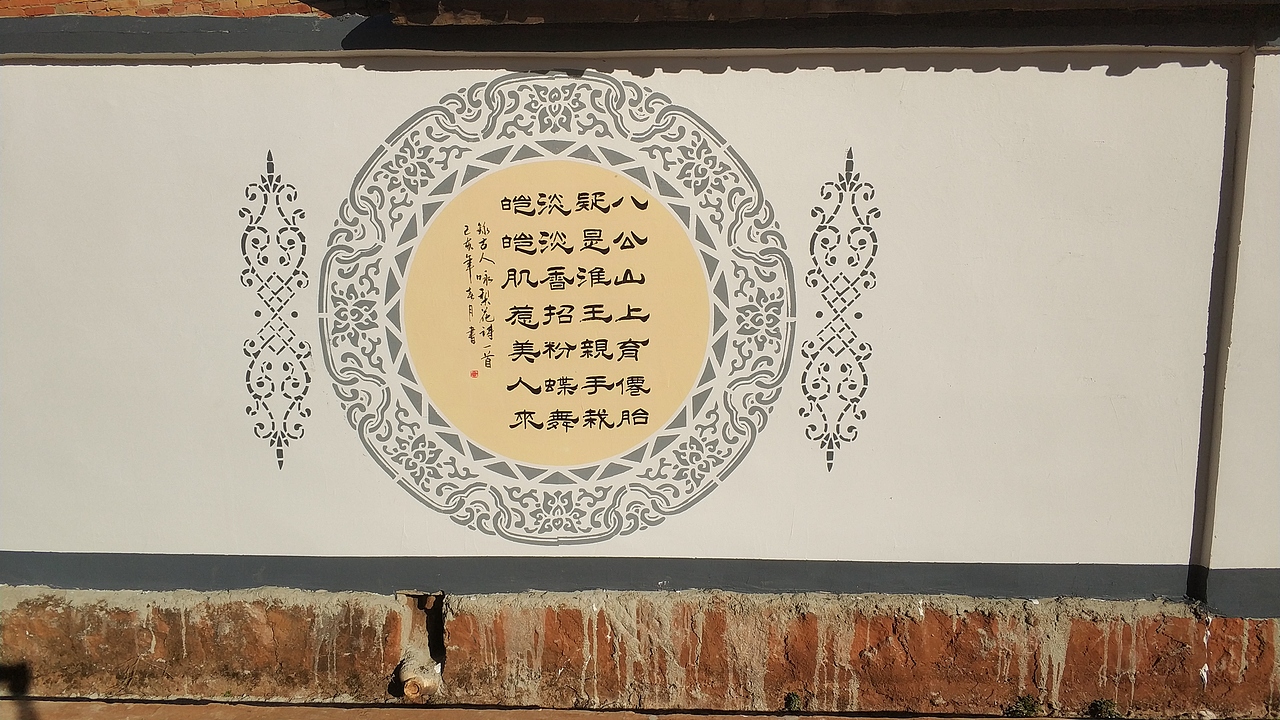 八公山上育僊胎
疑是淮王親手栽
淡淡香招粉蝶舞
皑皑肌惹美人來
錄古人咏梨花诗一首
己亥年冬月書